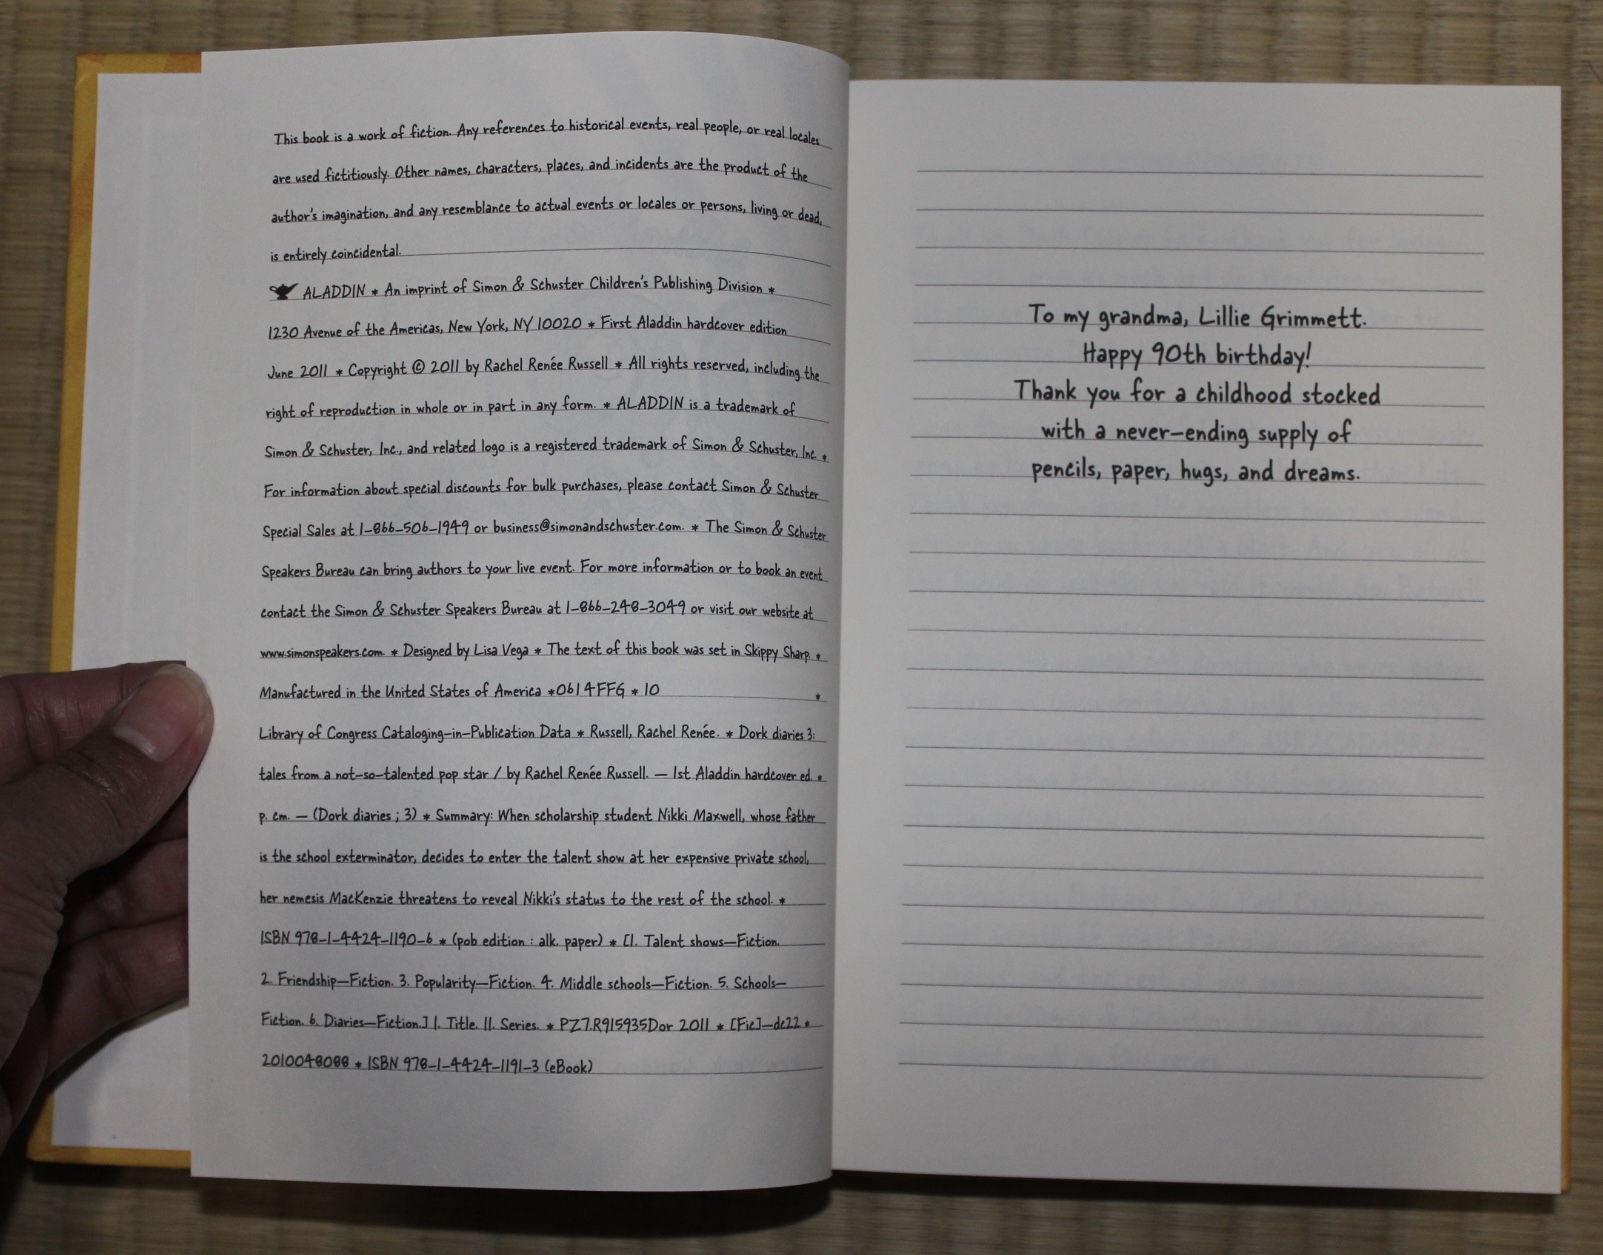 This book is a work of fiction. Any references to historical events, real people, or real locales
are used fictitiously. Other names, characters, places, and incidents are the product of the
author's imagination, and any resemblance to actual events or locales or persons, living or dead,
is entirely coincidental.
ALADDIN * An imprint of Simon & Schuster Children's Publishing Division *
1230 Avenue of the Americas, New York, NY 10020 * First Aladdin hardcover edition
June 2011 * Copyright © 2011 by Rachel Renée Russell * All rights reserved, including the
right of reproduction in whole or in part in any form. * ALADDIN is a trademark of
Simon & Schuster, Inc., and related logo is a registered trademark of Simon & Schuster, Inc. *
For information about special discounts for bulk purchases, please contact Simon & Schuster
Special Sales at 1-866-506-1949 or business@simonandschuster.com. * The Simon & Schuster
Speakers Bureau can bring authors to your live event. For more information or to book an event
contact the Simon & Schuster Speakers Bureau at 1-866-248-3049 or visit our website at
www.simonspeakers.com. * Designed by Lisa Vega * The text of this book was set in Skippy Sharp. *
Manufactured in the United States of America *0614FFG * 10 *
Library of Congress Cataloging-in-Publication Data * Russell, Rachel Renée. * Dork diaries 3:
tales from a not-so-talented pop star / by Rachel Renée Russell. — 1st Aladdin hardcover ed. *
p. cm. — (Dork diaries ; 3) * Summary: When scholarship student Nikki Maxwell, whose father
is the school exterminator, decides to enter the talent show at her expensive private school,
her nemesis MacKenzie threatens to reveal Nikki's status to the rest of the school. *
ISBN 978-1-4424-1190-6 * (pob edition : alk. paper) * [1. Talent shows—Fiction.
2. Friendship—Fiction. 3. Popularity—Fiction. 4. Middle schools—Fiction. 5. Schools—
Fiction. 6. Diaries—Fiction.] I. Title. II. Series. * PZ7.R915935Dor 2011 * [Fic]—dc22 *
2010048088 * ISBN 978-1-4424-1191-3 (eBook)
To my grandma, Lillie Grimmett.
Happy 90th birthday!
Thank you for a childhood stocked
with a never-ending supply of
pencils, paper, hugs, and dreams.